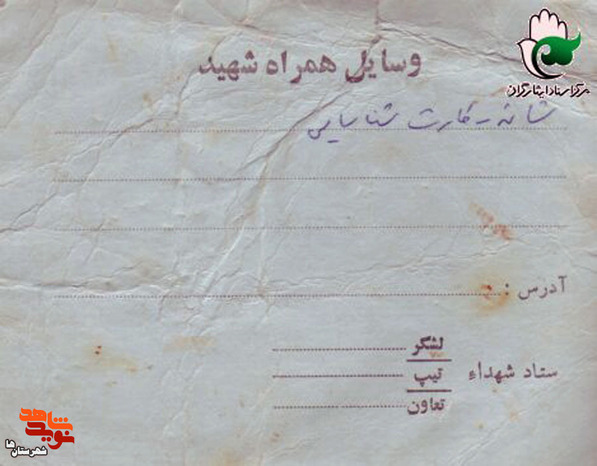 مرکز اسناد ایثارگران
وسایل همراه شهید
شانه - کارت شناسایی
آدرس :
لشگر
ستاد شهداء تیپ
تعاون
نوید شاهد
شهرستان‌ها